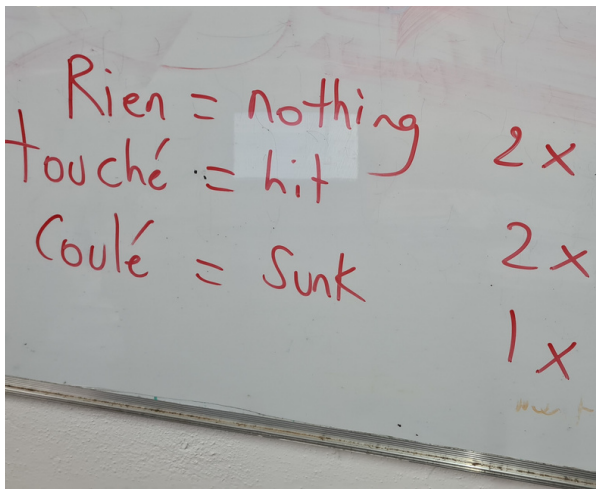 Rien = nothing
touché = hit
Coulé = Sunk
2 x
2 x
1 x